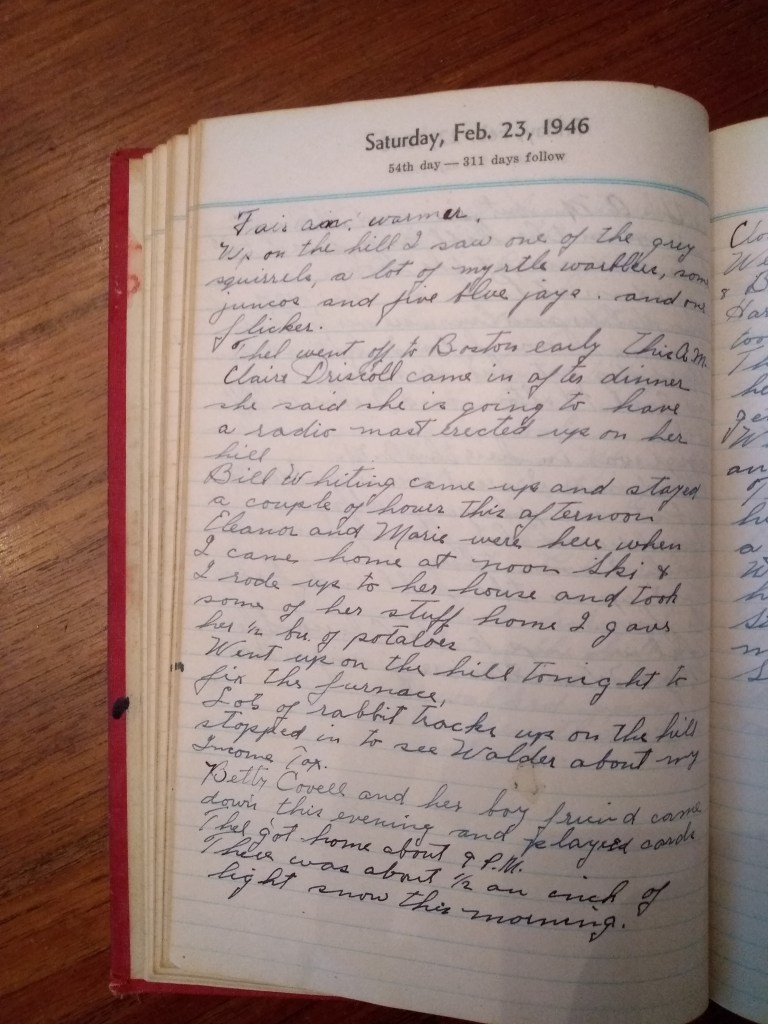 Saturday, Feb. 23, 1946
54th day — 311 days follow
Fair air. warmer.
Up on the hill I saw one of the grey
squirrels, a lot of myrtle warblers, some
juncos and five blue jays. and one
flicker.
Thel went off to Boston early this A.M.
Claire Driscoll came in after dinner
she said she is going to have
a radio mast erected up on her
hill
Bill Whiting came up and stayed
a couple of hours this afternoon
Eleanor and Marie were here when
I came home at noon Ski &
I rode up to her house and took
some of her stuff home I gave
her ½ bu. of potatoes
Went up on the hill tonight to
fix the furnace,
Lots of rabbit tracks up on the hill
stopped in to see Walder about my
Income Tax.
Betty Covell and her boy friend came
down this evening and played cards
Thel got home about 9 P.M.
There was about ½ an inch of
light snow this morning.